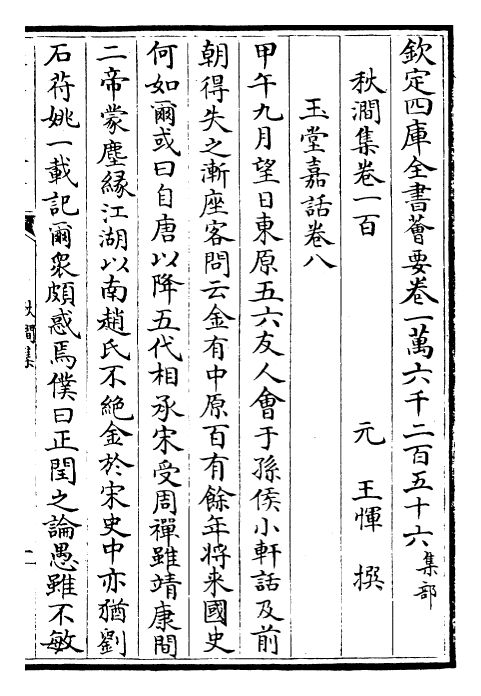 欽定四庫全書薈要卷一萬六千二百五十六集部
秋澗集卷一百　元　王惲　撰
玉堂嘉話卷八
甲午九月望日東原五六友人會于孫侯小軒話及前
朝得失之漸座客問云金有中原百有餘年將来國史
何如爾或曰自唐以降五代相承宋受周禪雖靖康間
二帝蒙塵緣江湖以南趙氏不絕金於宋史中亦猶劉
石苻姚一載記爾衆頗惑焉僕曰正閏之論愚雖不敏
秋澗集